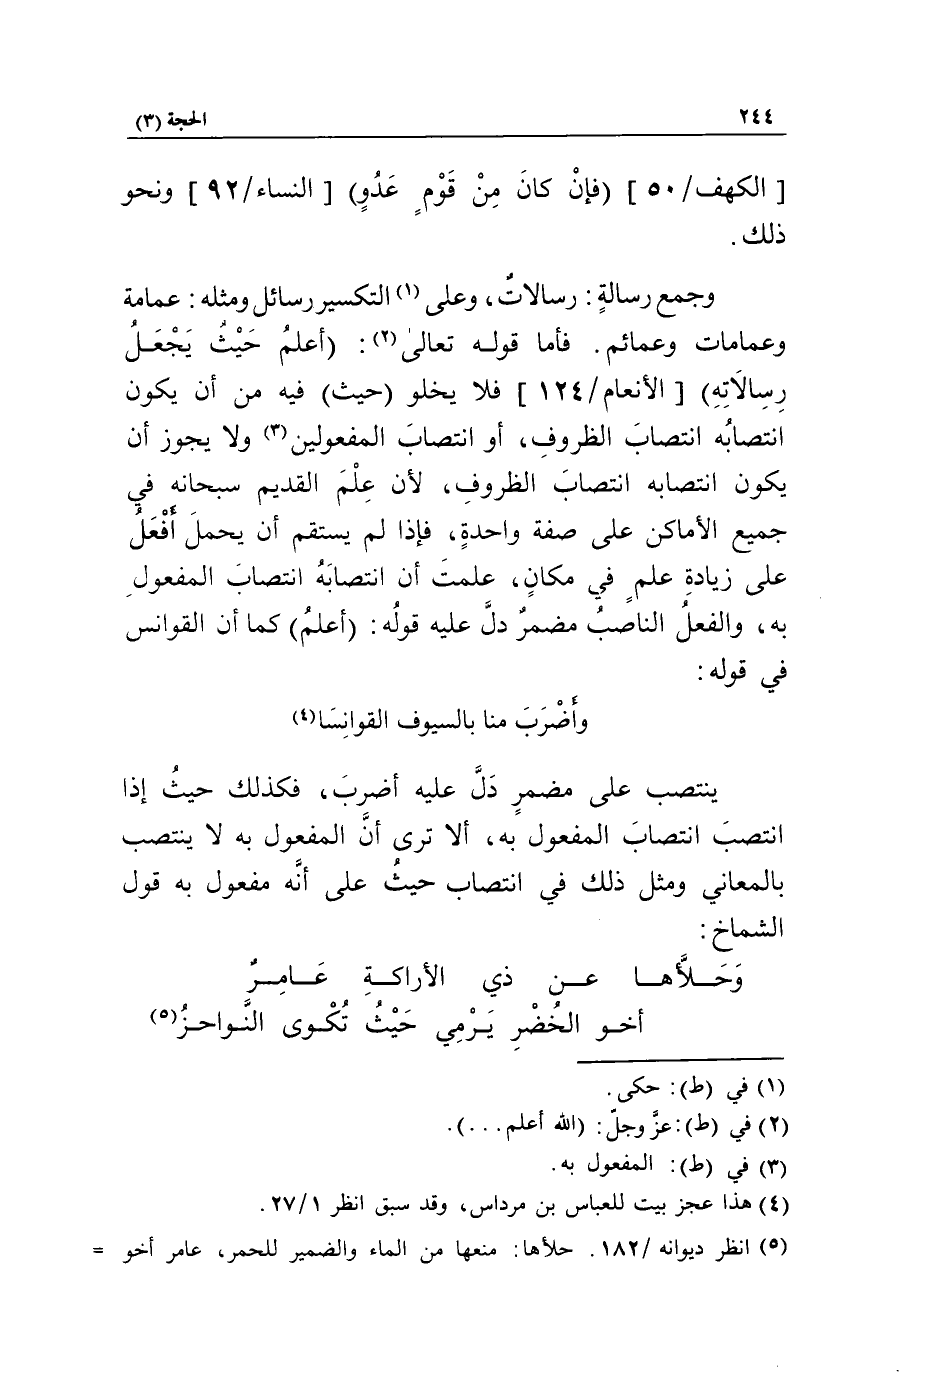 ٢٤٤ الحجة (٣)
[ الكهف/٥٠ ] (فإنْ كانَ مِنْ قَوْمٍ عَدُوٍ) [ النساء/٩٢ ] ونحو
ذلك .
وجمع رسالةٍ : رسالاتٌ ، وعلى (١) التكسير رسائل ومثله : عمامة
وعمامات وعمائم . فأما قوله تعالىٰ(٢) : (أعلمُ حَيْثُ يَجْعَلُ
رِسِالَاتِهِ) [ الأنعام/١٢٤ ] فلا يخلو (حيث) فيه من أن يكون
انتصابُه انتصابَ الظروفِ، أو انتصابَ المفعولين(٣) ولا يجوز أن
يكون انتصابه انتصابَ الظروفِ، لأن عِلْمَ القديم سبحانه في
جميع الأماكن على صفة واحدةٍ، فإذا لم يستقم أن يحملَ أَفْعَلُ
على زيادةِ علمٍ في مكانٍ، علمتَ أن انتصابَهُ انتصابَ المفعولِ
به، والفعلُ الناصبُ مضمرٌ دلَّ عليه قولُه: (أعلمُ) كما أن القوانس
في قوله:
وأَضْرَبَ منا بالسيوف القوانِسَا(٤)
ينتصب على مضمرٍ دَلَّ عليه أضربَ، فكذلك حيثُ إذا
انتصبَ انتصابَ المفعول به، ألا ترى أنَّ المفعول به لا ينتصب
بالمعاني ومثل ذلك في انتصاب حيثُ على أنَّه مفعول به قول
الشماخ :
وَحَلَّأها عن ذي الأراكةِ عَامِرٌ
أخو الخُضْرِ يَرْمِي حَيْثُ تُكْوى النَّواحزُ(٥)
(١) في (ط): حكى.
(٢) في (ط): عزَّ وجلّ: (الله أعلم...).
(٣) في (ط): المفعول به.
(٤) هذا عجز بيت للعباس بن مرداس، وقد سبق انظر ٢٧/١.
(٥) انظر ديوانه /١٨٢. حلأها: منعها من الماء والضمير للحمر، عامر أخو =